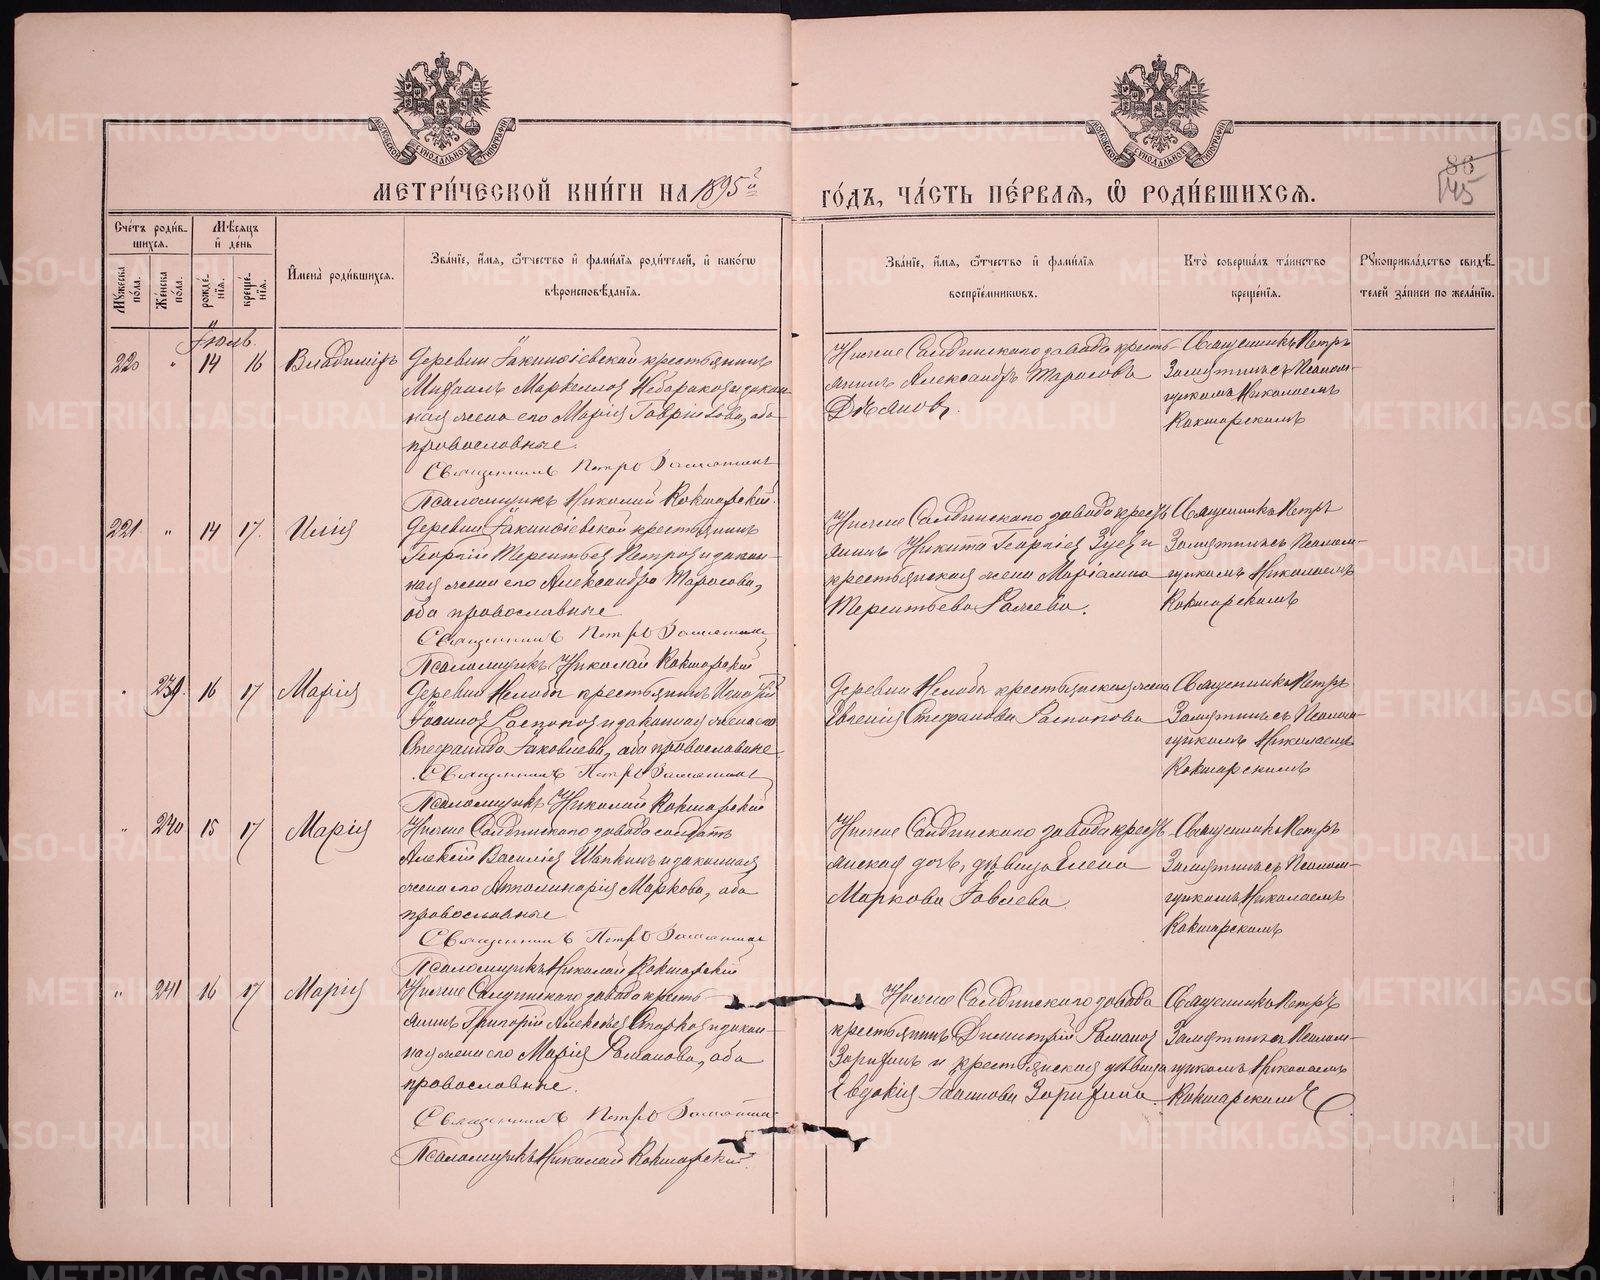 МЕТРИ́ЧЕСКОЙ КНИ́ГИ НА 1895 й
ГО́ДЪ, ЧА́СТЬ ПЕ́РВАѦ, Ѡ҆ РОДИ́ВШИХСѦ.
145
Сче́тъ роди́в-
шихсѧ.
Мꙋ́жеска по́ла.
Же́нска по́ла.
Мѣ́сѧцъ
и҆ де́нь
рожде́-
нїѧ.
креще́-
нїѧ.
И҆мена̀ роди́вшихсѧ.
Зва́нїе, и҆́мѧ, ѻ҆́тчество и҆ фами́лїѧ роди́телей, и҆ како́гѡ
вѣроисповѣ́данїѧ.
Зва́нїе, и҆́мѧ, ѻ҆́тчество и҆ фами́лїѧ
воспрїе́мникѡвъ.
Кто̀ соверша́лъ та́инство
креще́нїѧ.
Рꙋкоприкла́дство свидѣ́-
телей за́писи по жела́нїю.
Іюль.
220 " 14 16 Владиміръ
Деревни Іакинѳіевской крестьянинъ
Михаилъ Маркеллов
и закон-
ная жена его Марія Гавріилова, оба
православные.
Священникъ Петръ Замятинъ
Псаломщикъ Николай Кокшарскій.
Нижне Салдинскаго завода кресть-
янинъ Александръ Тарасовъ
Священникъ Петръ
Замятинъ съ Псалом-
щикомъ Николаемъ
Кокшарскимъ
221 " 14 17. Илія
Деревни Іакинѳіевской крестьянинъ
Георгій Терентьев Петров и закон-
ная жена его Александра Тарасова,
оба православные
Священникъ Петръ Замятинъ
Псаломщикъ Николай Кокшарскій
Нижне Салдинскаго завода кресть-
янинъ Никита Георгіев Зуев и
крестьянская жена Маріамна
Терентьева
Священникъ Петръ
Замятинъ съ Псалом-
щикомъ Николаемъ
Кокшарскимъ
" 239. 16 17 Марія
Деревни Нелобы крестьянинъ
Іоаннов Распопов и законная жена его
Стефанида Іаковлева, оба православные
Священникъ Петръ Замятинъ
Псаломщикъ Николай Кокшарскій
Деревни Нелобы крестьянская жена
Евгенія Стефанова Распопова
Священникъ Петръ
Замятинъ съ Псалом-
щикомъ Николаемъ
Кокшарскимъ
" 240 15 17 Марія
Нижне Салдинскаго завода солдатъ
Алексій Василіев Шапкинъ и законная
жена его Апполинарія Маркова, оба
православные
Священникъ Петръ Замятинъ
Псаломщикъ Николай Кокшарскій
Нижне Салдинскаго завода кресть-
янская дочь, дѣвица Елена
Маркова Іовлева
Священникъ Петръ
Замятинъ съ Псалом-
щикомъ Николаемъ
Кокшарскимъ
" 241 16 17 Марія
Нижне Салдинскаго завода кресть-
янинъ Григорій Алексѣев и закон-
ная жена его Марія Романова, оба
православные.
Священникъ Петръ Замятинъ
Псаломщикъ Николай Кокшарскій.
Нижне Салдинскаго завода
крестьянинъ Димитрій Романов
Зорихинъ и крестьянская дѣвица
Евдокія Іоаннова Зорихина.
Священникъ Петръ
Замятинъ съ Псалом-
щикомъ Николаемъ
Кокшарскимъ.
METRIKI.GASO-URAL.RU